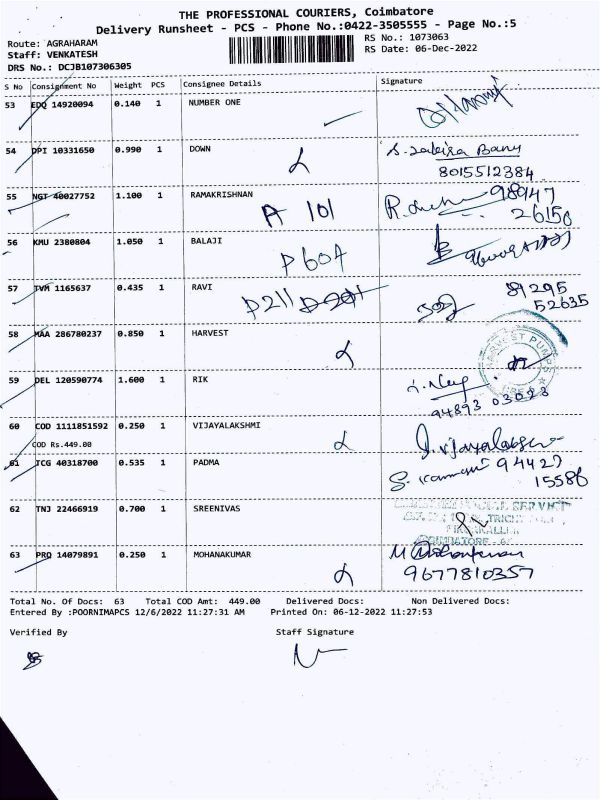 THE PROFESSIONAL COURIERS, Coimbatore
Delivery Runsheet - PCS - Phone No.:0422-3505555 - Page No.:5
Route: AGRAHARAM
RS No.: 1073063
Staff: VENKATESH
RS Date: 06-Dec-2022
DRS No.: DCJB107306305
S No Consignment No Weight PCS Consignee Details Signature
53 EDQ 14920094 0.140 1 NUMBER ONE
54 DPI 10331650 0.990 1 DOWN
8015512384
55 NGT 40027752 1.100 1 RAMAKRISHNAN 98947
A 101 26150
56 KMU 2380804 1.050 1 BALAJI
P604
57 TVM 1165637 0.435 1 RAVI 89295
P211 52635
58 MAA 286780237 0.850 1 HARVEST
HARVEST PUMPS
59 DEL 120590774 1.600 1 RIK
94893 03023
60 COD 1111851592 0.250 1 VIJAYALAKSHMI
COD Rs.449.00
61 TCG 40318700 0.535 1 PADMA 94427
15586
62 TNJ 22466919 0.700 1 SREENIVAS
63 PRQ 14079891 0.250 1 MOHANAKUMAR
9677810357
Total No. Of Docs: 63 Total COD Amt: 449.00 Delivered Docs: Non Delivered Docs:
Entered By :POORNIMAPCS 12/6/2022 11:27:31 AM Printed On: 06-12-2022 11:27:53
Verified By Staff Signature